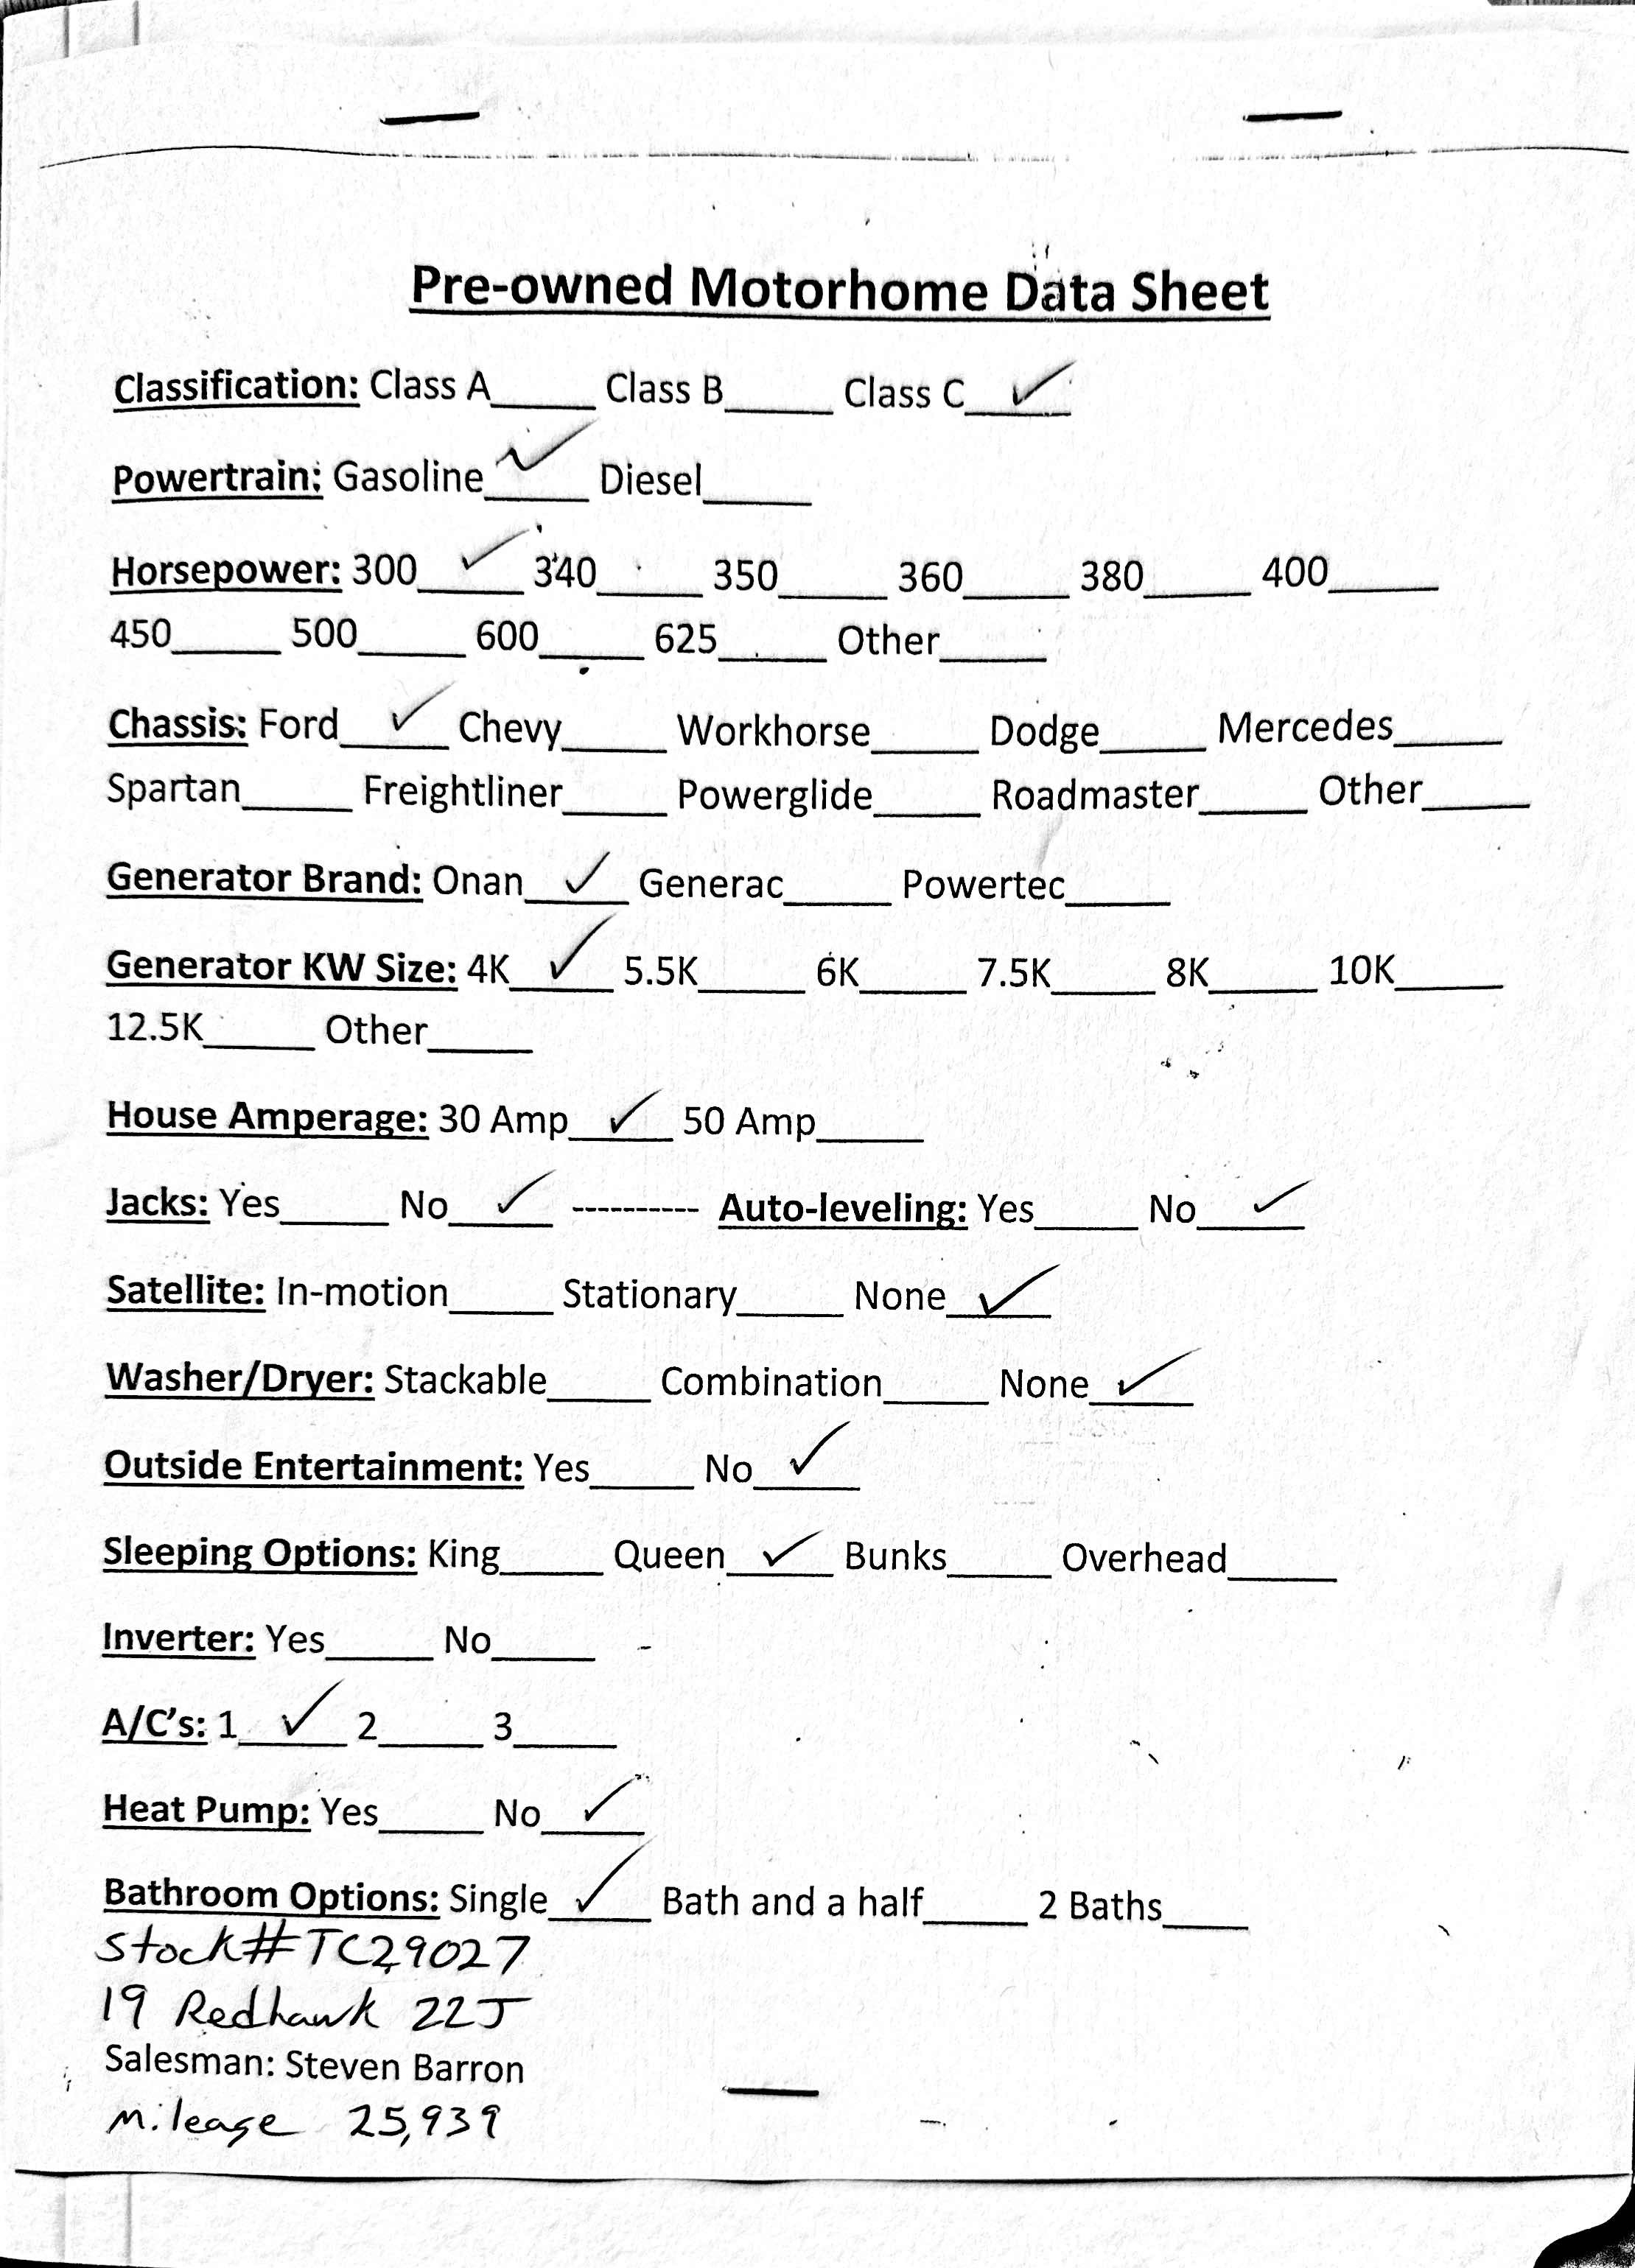 Pre-owned Motorhome Data Sheet
Classification: Class A_____ Class B_____ Class C__✓__
Powertrain: Gasoline__✓__ Diesel_____
Horsepower: 300__✓__ 340_____ 350_____ 360_____ 380_____ 400_____
450_____ 500_____ 600_____ 625_____ Other_____
Chassis: Ford__✓__ Chevy_____ Workhorse_____ Dodge_____ Mercedes_____
Spartan_____ Freightliner_____ Powerglide_____ Roadmaster_____ Other_____
Generator Brand: Onan__✓__ Generac_____ Powertec_____
Generator KW Size: 4K__✓__ 5.5K_____ 6K_____ 7.5K_____ 8K_____ 10K_____
12.5K_____ Other_____
House Amperage: 30 Amp__✓__ 50 Amp_____
Jacks: Yes_____ No__✓__ ---------- Auto-leveling: Yes_____ No__✓__
Satellite: In-motion_____ Stationary_____ None__✓__
Washer/Dryer: Stackable_____ Combination_____ None__✓__
Outside Entertainment: Yes_____ No__✓__
Sleeping Options: King_____ Queen__✓__ Bunks_____ Overhead_____
Inverter: Yes_____ No_____
A/C's: 1__✓__ 2_____ 3_____
Heat Pump: Yes_____ No__✓__
Bathroom Options: Single__✓__ Bath and a half_____ 2 Baths____
Stock# TC29027
19 Redhawk 22J
Salesman: Steven Barron
Mileage 25,939